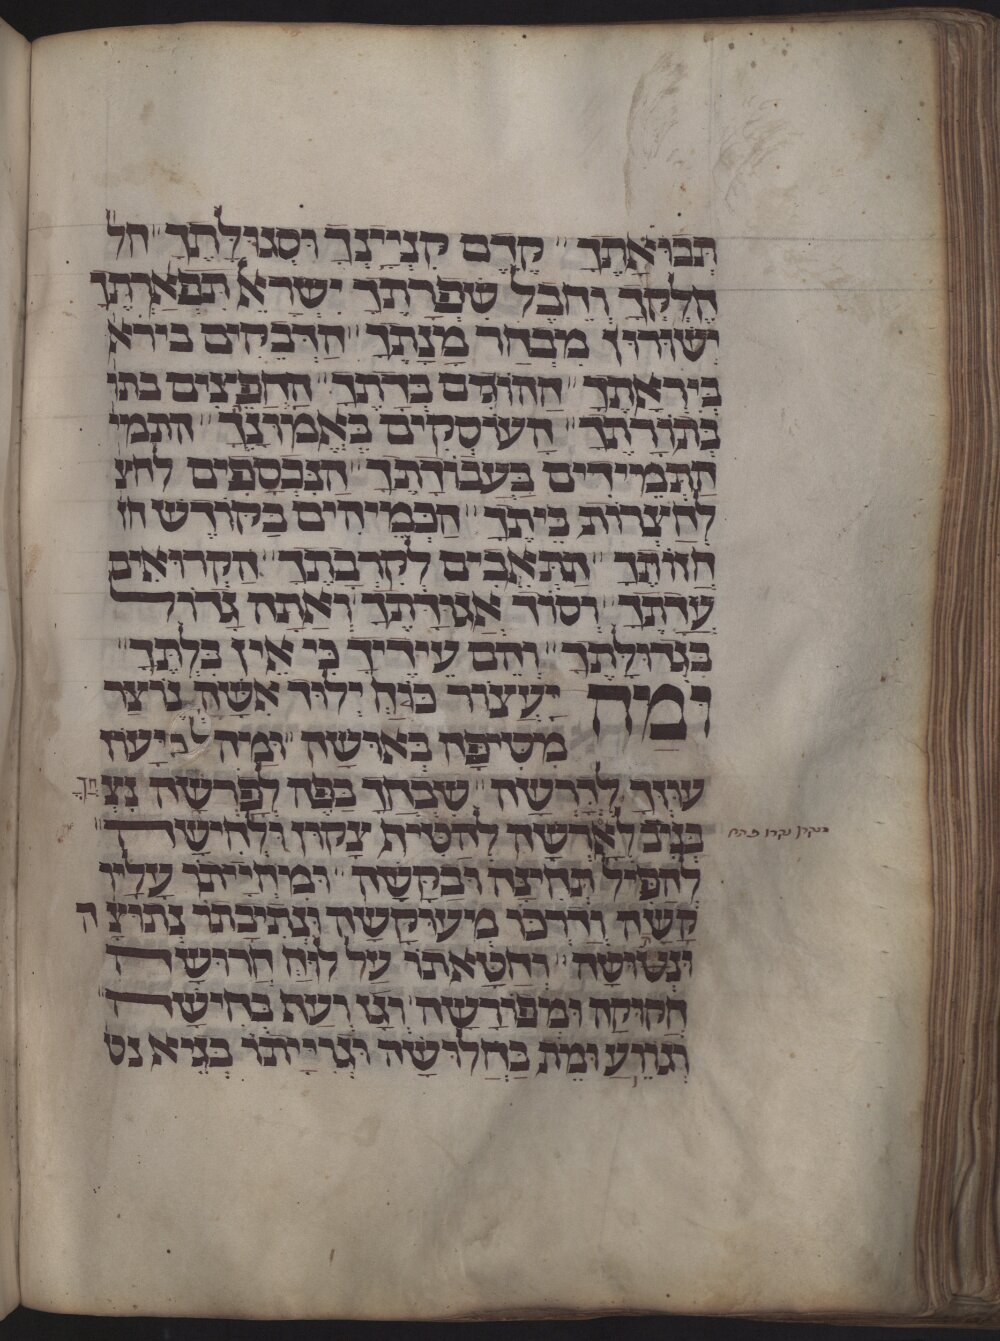 תְּבוּאָתֶךָ קֶדֶם קִנְיָנֶךָ וּסְגוּלָּתֶךָ חל
חֶלְקֶךָ וְחֶבֶל שִׁפְרָתֶךָ יִשְׂרָאֵ תִפְאַרְתֶּךָ
יְשׁוּרוּן מִבְחַר מָנָתֶךָ הַדְּבֵקִים בירא
בְּיִרְאָתֶךָ הַהוֹגִים בְּדָתֶךָ הַחֲפֵצִים בתו
בְּתוֹרָתֶךָ הָעוֹסְקִים בֶּאֱמוּנָתֶךָ התמי
הַתְּמִידִים בַּעֲבוֹדָתֶךָ הַנִּכְסָפִים לחצ
לְחַצְרוֹת בֵּיתֶךָ הַכְּמֵיהִים בַּקּוֹדֶשׁ חז
חֲזוֹתֶךָ הַתְּאֵבִים לְקִרְבָתֶךָ הַקְּרוּאִים
עֲדָתֶךָ וְסוֹד אֲגוּדָּתֶךָ וְאַתָּה גָדוֹל
בִּגְדוּלָּתֶךָ וְהֵם עֵידֶיךָ כִּי אֵין בִּלְתֶּךָ
וּמַה יַעֲצוֹר כֹּחַ יְלוּד אִשָּׁה נוֹצַר
מִטִּיפָּה בְאוּשָׁה וּמַה יָּבִיעַ
עוֹזֶךָ לְדוֹרְשָׁהּ שִׁבְחֶךָ בַּפֶּה לְפָרְשָׁהּ נצ חִךְ
לְאָרְשָׁהּ לְהַטּוֹת צָקוּן וּלְחִישָׁה
בנקיון נקרו
לְהַפִּיל תְּחִינָּה וּבַקָּשָׁה וּמִחְיָיתוֹ עָלָיו
קָשָׁה וְדַרְכּוֹ מְעוּקָּשָׁה וּנְתִיבָתוֹ נְתוּצָ ה
וּנְטוּשָׁה וְחַטָּאתוֹ עַל לוּחַ חֲרוּשָׁה
חֲקוּקָה וּמְפוֹרָשָׁה
וְגוֹוֵעַ וּמֵת בַּחֲלוּשָׁה וּגְוִיָּיתוֹ